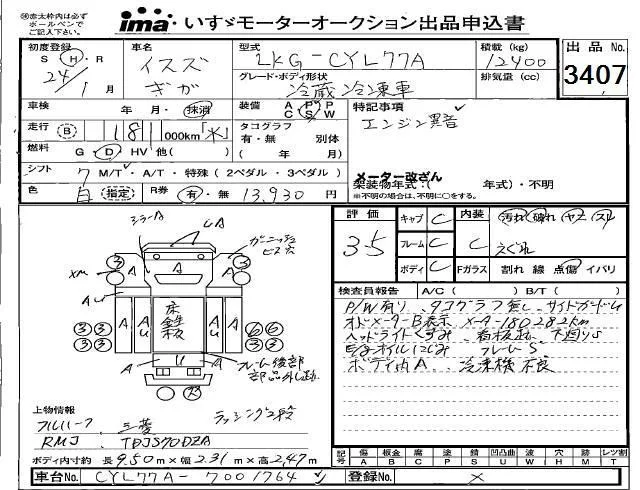 ㊟赤太枠内は必ず
ボールペンで
ご記入下さい。
ima いすゞモーターオークション出品申込書
初度登録
S H・R
24/1 月
車名
イスズ
ギガ
型式
LKG-CYL77A
グレード・ボディ形状
冷蔵冷凍車
積載(kg)
12400
排気量(cc)
出品No.
3407
車検
年・月・抹消
装備
A P P
C S W
特記事項
エンジン異音
走行 B 181 000km「水」
タコグラフ
有・無 別体
( 年 月)
燃料 G・D・HV 他( )
シフト 7 M/T・A/T・特殊(2ペダル・3ペダル)
メーター改ざん
架装物年式:( 年式)・不明
※不明の場合は、不明に○をする。
色 白 指定 R券 有・無 13,930 円
評価
3.5
キャブ C
フレーム C
ボディ C
内装
C
汚れ 破れ ヤニ スレ
えぐれ
Fガラス 割れ 線 点傷 イバリ
検査員報告 A/C( ) B/T( )
P/W有り、タコグラフ無し、サイドガードU
オドメーターB表示 メーター180282km
ヘッドライトくすみ、看板跡、下廻りS
E/gオイルにじみ フレームS
ボディ内A、冷凍機不良
ミラーA
UA
ガーニッシュ
ビス穴
XM
A
AU
床
鉄
板
U
フレーム後部
部品外し跡
3
6
上物情報
フルハーフ 三菱 ラッシング2段
RMJ TDJS70DZA
ボディ内寸約 長9.50m×幅2.31m×高2.47m
記号
傷 板金 腐 塗 錆 凹凸曲 波 穴 跡 レツ割
A B C P S U W H M T
車台No. CYL77A-7001764
登録No. ×